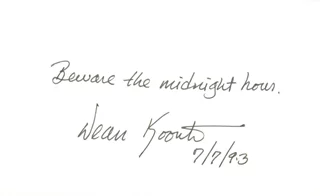 Beware the midnight hour.
Dean Koontz
7/7/93